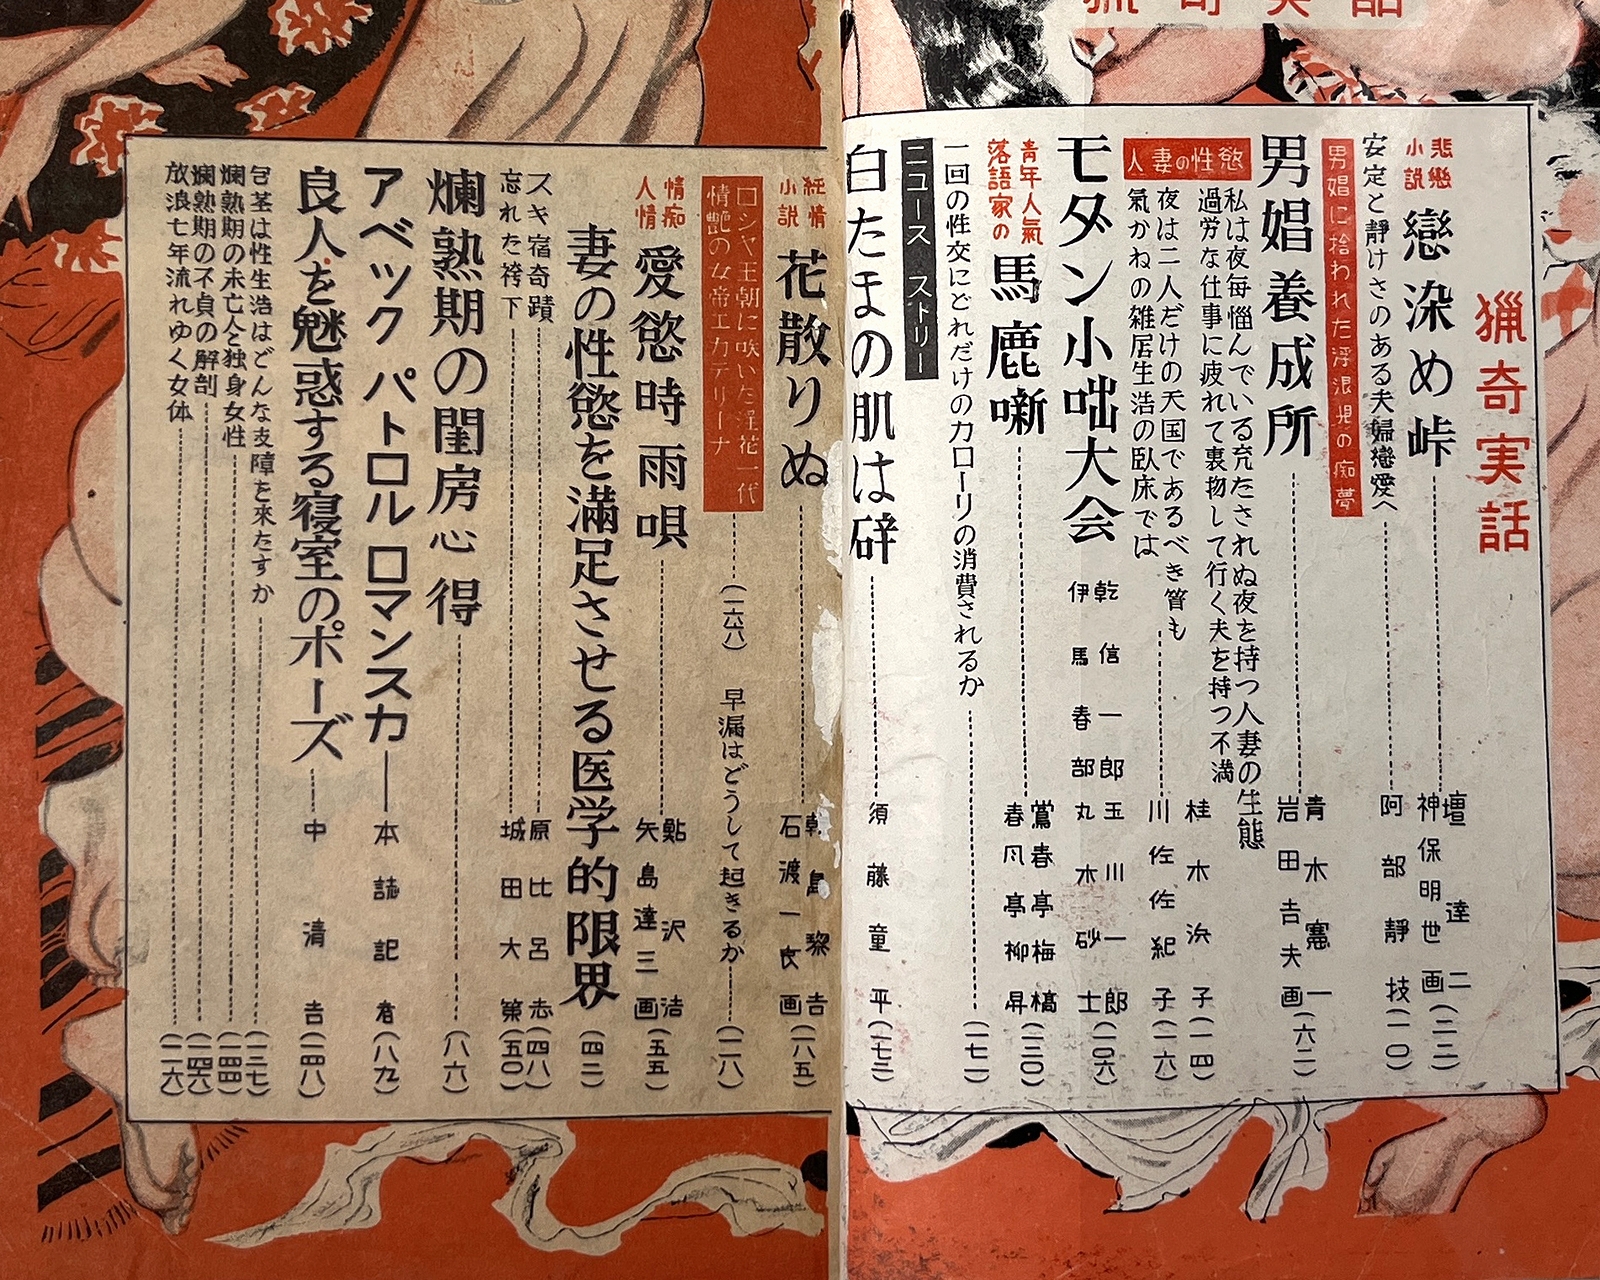 猟奇実話
猟奇実話
悲戀小説
戀染め峠
壇達二
神保明世画
(二二)
安定と靜けさのある夫婦戀愛へ
阿部靜技
(一一〇)
男娼に拾われた浮浪児の痴夢
男娼養成所
青木憲一
岩田吉夫画
(六二)
人妻の性慾
私は夜毎惱んでいる充たされぬ夜を持つ人妻の生態
過労な仕事に疲れて裏物して行く夫を持つ不満
桂木浜子
(一一四)
夜は二人だけの天国であるべき管も
氣がねの雑居生活の臥床では
川佐佐紀子
(一一六)
モダン小咄大会
乾信一郎
玉川一郎
伊馬春部
丸木砂土
(一〇六)
青年人氣落語家の
馬鹿噺
鶯春亭梅橋
春風亭柳昇
(一三〇)
一回の性交にどれだけのカロリーの消費されるか
(一七一)
ニュース ストリー
白たまの肌は碎
須藤童平
(一七三)
花散りぬ
石渡一良画
(一八五)
ロシヤ王朝に咲いた淫花一代
情艶の女帝エカテリーナ
(一六八)
早漏はどうして起きるか
(一二八)
情痴人情
愛慾時雨唄
鮎沢浩
矢島達三画
(一五五)
妻の性慾を満足させる医学的限界
(四二)
スキ宿奇蹟
原比呂志
(四八)
忘れた袴下
城田大策
(五〇)
爛熟期の閨房心得
(八六)
アベック パトロル ロマンスカー
本誌記者
(八九)
良人を魅惑する寝室のポーズ
中清吉
(一四八)
包茎は性生活はどんな支障を来たすか
(一三七)
爛熟期の未亡人と独身女性
(一四四)
爛熟期の不貞の解剖
(一四六)
放浪七年流れゆく女体
(一一六)